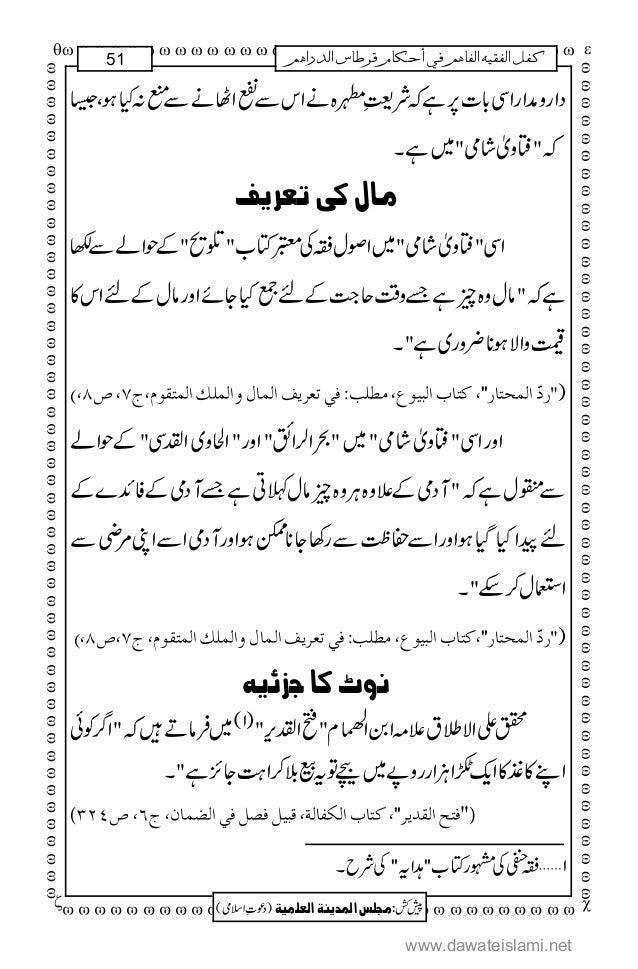 كفل الفقيه الفاهم في أحكام قرطاس الدراهم
51
دارومدار اسی بات پر ہے کہ شریعتِ مطہرہ نے اس سے نفع اٹھانے سے منع نہ کیا ہو، جیسا
کہ "فتاویٰ شامی" میں ہے۔
مال کی تعریف
اسی "فتاویٰ شامی" میں اصول فقہ کی معتبر کتاب "تلویح" کے حوالے سے لکھا
ہے کہ "مال وہ چیز ہے جسے وقت حاجت کے لئے جمع کیا جائے اور مال کے لئے اس کا
قیمت والا ہونا ضروری ہے"۔
("ردّ المحتار"، كتاب البيوع، مطلب: في تعريف المال والملك المتقوم، ج٧، ص٨،)
اور اسی "فتاویٰ شامی" میں "بحر الرائق" اور "الحاوی القدسی" کے حوالے
سے منقول ہے کہ "آدمی کے علاوہ ہر وہ چیز مال کہلاتی ہے جسے آدمی کے فائدے کے
لئے پیدا کیا گیا ہو اور اسے حفاظت سے رکھا جانا ممکن ہو اور آدمی اسے اپنی مرضی سے
استعمال کر سکے"۔
("ردّ المحتار"، كتاب البيوع، مطلب: في تعريف المال والملك المتقوم، ج٧، ص٨،)
نوٹ کا جزئیہ
محقق علی الاطلاق علامہ ابن الھمام "فتح القدیر" (۱) میں فرماتے ہیں کہ "اگر کوئی
اپنے کاغذ کا ایک ٹکڑا ہزار روپے میں بیچے تو یہ بیع بلا کراہت جائز ہے"۔
("فتح القدير"، كتاب الكفالة، قبيل فصل في الضمان، ج٦، ص٣٢٤)
۱......فقہ حنفی کی مشہور کتاب "ہدایہ" کی شرح۔
پیش کش: مجلس المدينة العلمية (دعوتِ اسلامی)
www.dawateislami.net